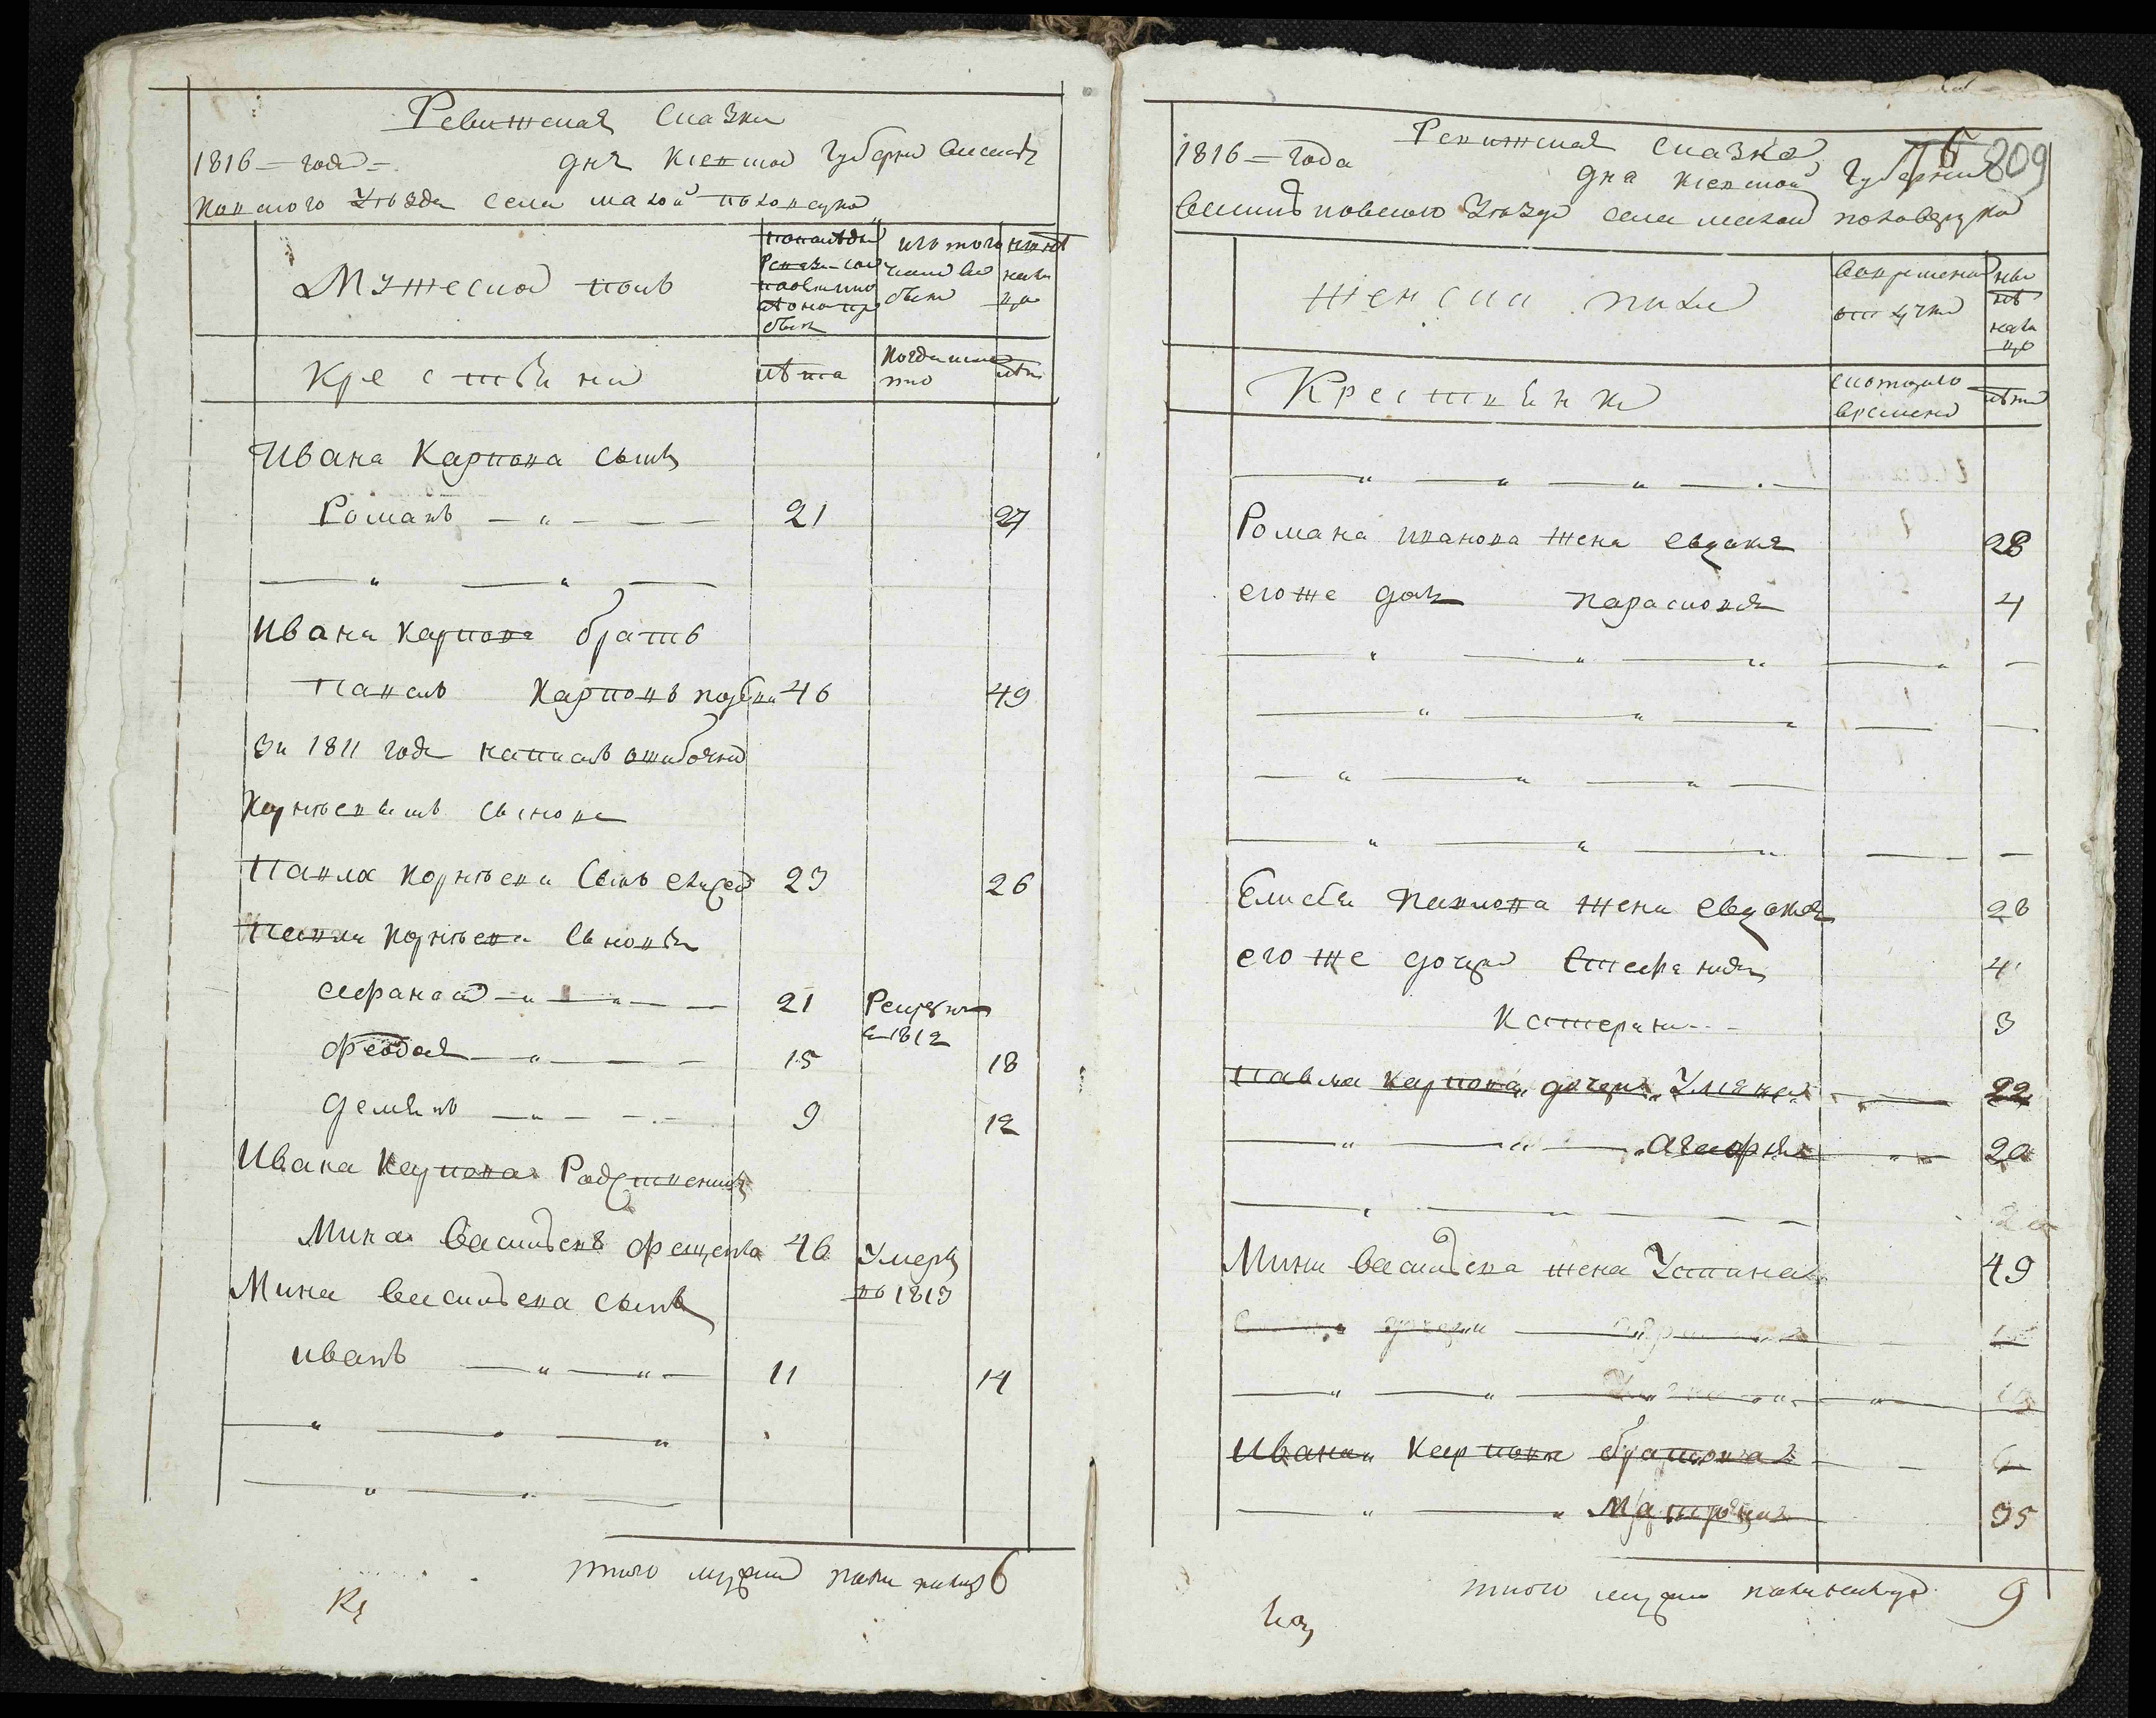 Ревижская сказка
1816 = года = дня Киевской Губерни Василь
ковского Уъзда села малой половецкой
Мужеска полъ
по последней ревизи состояло и по оной прибыло
изъ того числа выбыло
нынѣ налицо
Крестьяни
лѣта
когда именно
лѣта
Ивана Карпова сынъ
Романъ — „ — — — 21 27
Ивана Карпова братъ
Павелъ Карповъ 46 49
За 1811 года написанъ ошибочно
Корнѣевымъ сынова
Павла Корнѣева сынъ елисей 23 26
Павла Корнѣева сыновья
Афанасей — „ — „ — — 21 Рекрутъ
в 1812
Феодоръ — „ — — — 15 18
Демянъ — „ — — — 9 12
Ивана Карпова Родственникъ
Мина Васильевъ Фещенко 46 Умеръ
въ 1813
Мина Васильева сынъ
иванъ — „ — „ — 11 14
итого мужеска пола налицо 6
Ревижская сказка 76 809
1816 = года дня Киевской Губерни
Васильковского Уъзда села малой половецкой
Женска пола
во временной отлучке
нынѣ налицо
Крестьянки
с котораго времени
лѣта
Романа иванова жена евдокия 28
его же дочь парасковия 4
Елисея Павлова жена евдокия 28
его же дочери Стефанида 4
Катерина 3
Павла Карпова дочери Ульяна 22
Агафия 20
Мини Васильева жена Устина 49
дочери
Ивана Карпова братова
Матрона 35
итого женска пола налицо 9